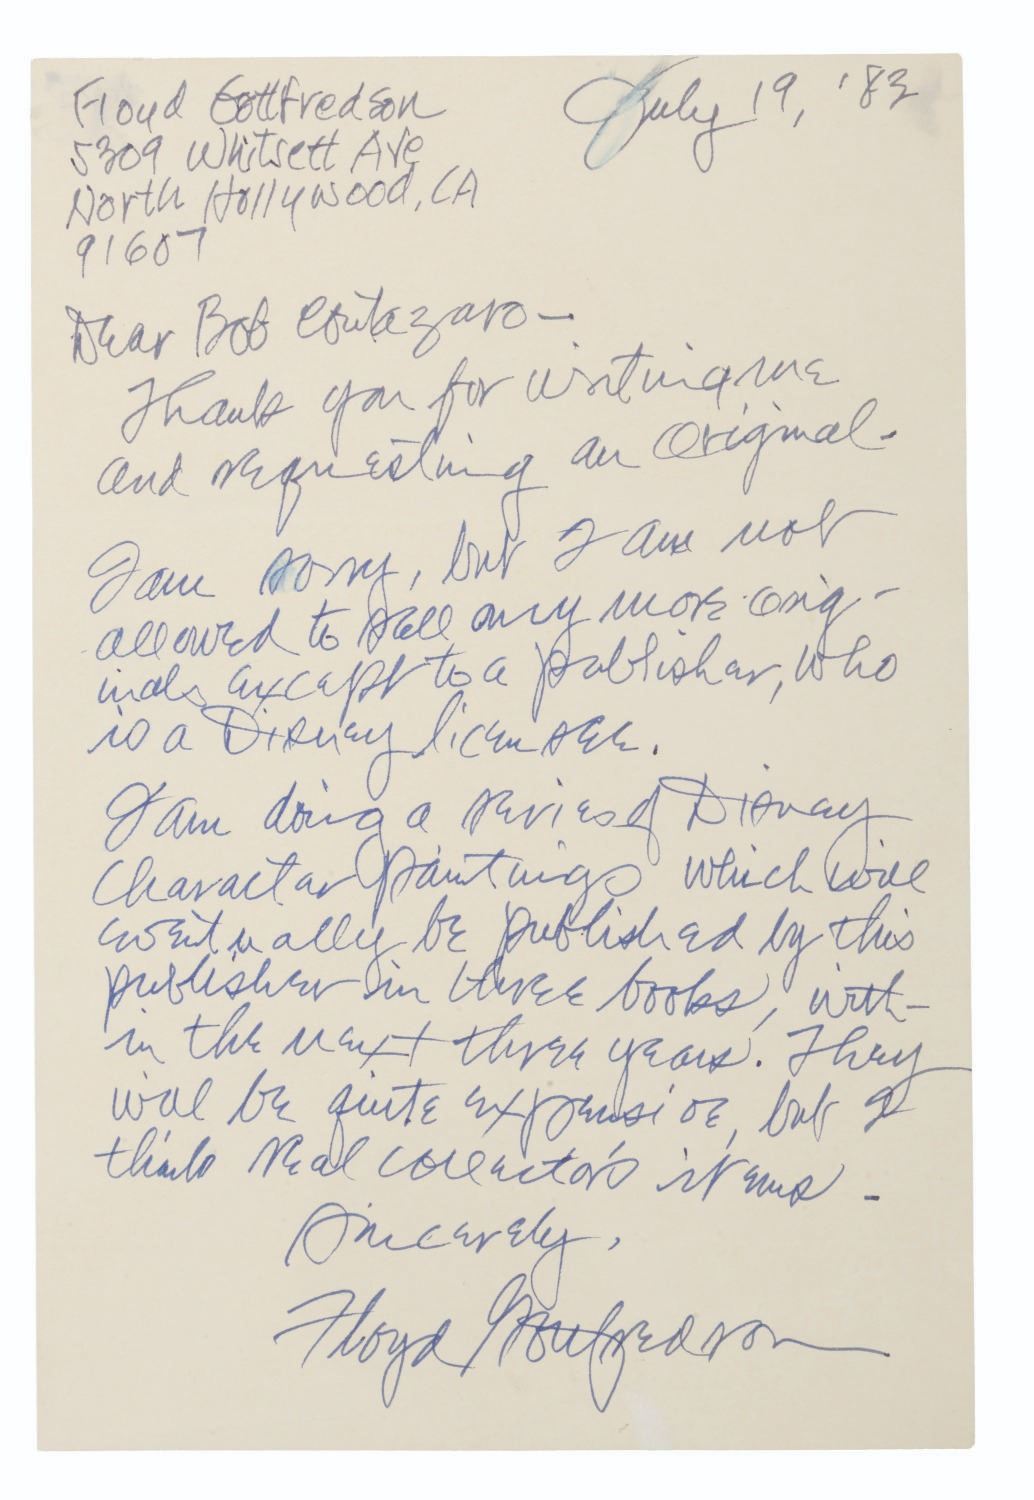 Floyd Gottfredson
5309 Whitsett Ave
North Hollywood, CA
91607
July 19, '83
Dear Bob
Thank you for writing me
and requesting an original.
I am sorry, but I am not
allowed to sell any more orig-
inals except to a publisher, who
is a Disney licensee.
I am doing a series of Disney
character paintings which will
eventually be published by this
publisher in three books, with-
in the next three years. They
will be quite expensive, but I
think real collector's items.
Sincerely,
Floyd Gottfredson